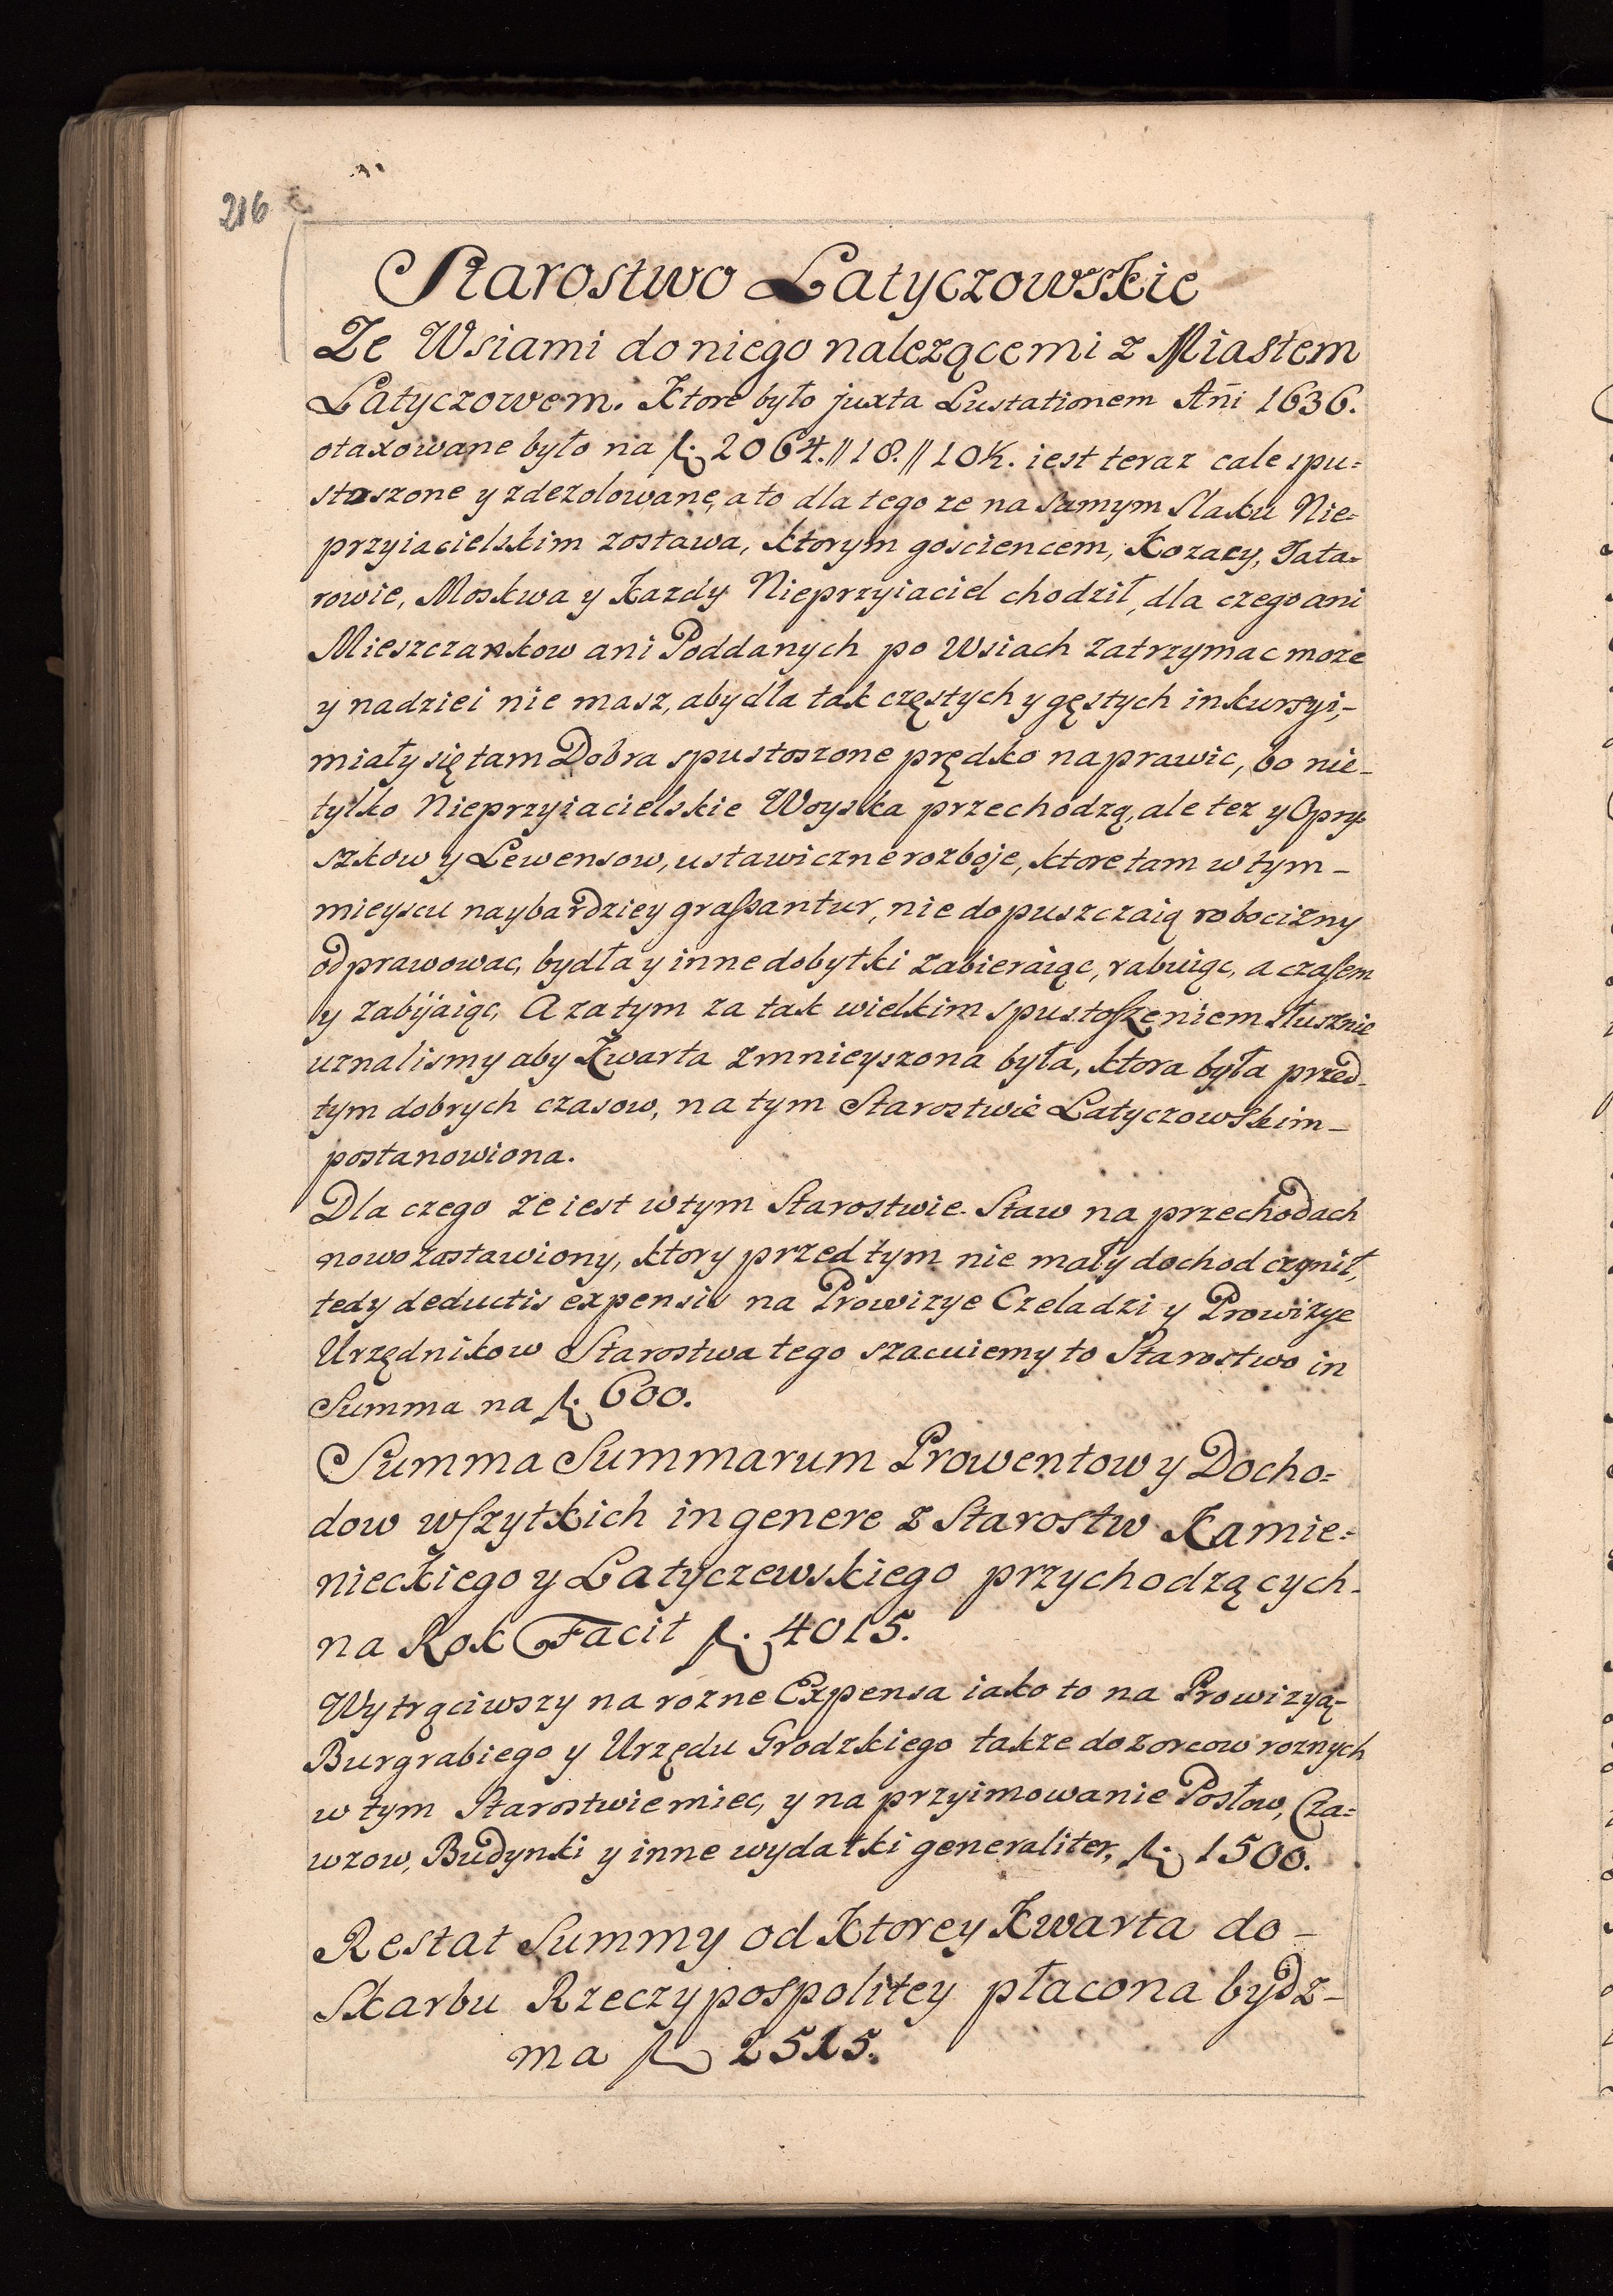 216
Starostwo Latyczowskie
Ze Wsiami do niego nalezącemi z Miastem
Latyczowem. Ktore było juxta Lustationem Añi 1636.
otaxowane było na fl. 2064.//18.//10K. iest teraz cale spu=
stoszone y zdezolowane, a to dla tego ze na samym Slaku Nie=
przyiacielskim zostawa, ktorym gosciencem, Kozacy, Tata=
rowie, Moskwa y Kazdy Nieprzyiaciel chodził, dla czego ani
Mieszczankow ani Poddanych po Wsiach zatrzymac moze
y nadziei nie masz, aby dla tak częstych y gęstych inkursyi,-
miały się tam Dobra spustoszone prędko naprawic, bo nie-
tylko Nieprzyiacielskie Woyska przechodzą, ale tez y Opry=
szkow y Lewensow, ustawiczne rozboje, ktore tam w tym-
mieyscu naybardziey graſsantur, nie dopuszczaią robocizny
odprawowac, bydła y inne dobytki zabieraiąc, rabuiąc, a czaſem
y zabijaiąc, A zatym za tak wielkim spustoſzeniem słusznie
uznalismy aby Kwarta zmnieyszona była, ktora była przed-
tym dobrych czasow, na tym Starostwie Latyczowskim-
postanowiona.
Dla czego ze iest w tym Starostwie Staw na przechodach
nowo zastawiony, ktory przed tym nie mały dochod czynił,
tedy deductis expensis na Prowizye Czeladzi y Prowizye
Urzędnikow Starostwa tego szacuiemy to Starostwo in
Summa na fl. 600.
Summa Summarum Prowentow y Docho=
dow wſzytkich in genere z Starostw Kamie=
nieckiego y Latyczewskiego przychodzących-
na Rok Facit fl. 4015.
Wytrąciwszy na rozne Expensa iako to na Prowizyą-
Burgrabiego y Urzędu Grodzkiego takze dozorcow roznych
w tym Starostwie miec, y na przyimowanie Posłow, Cza=
wzow, Budynki y inne wydatki generaliter, fl. 1500.
Restat Summy od Ktorey Kwarta do-
Skarbu Rzeczypospolitey płacona bydz-
ma fl 2515.